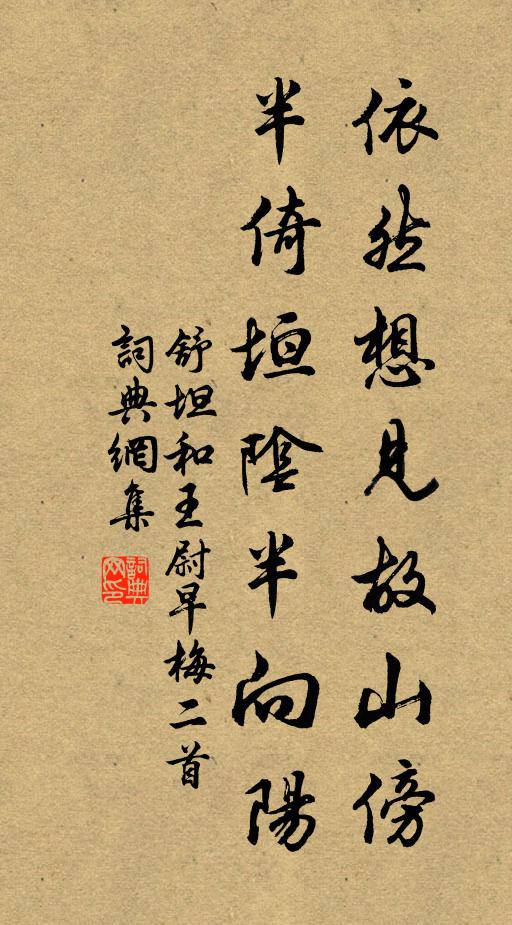 依然想見故山傍
半倚垣陰半向陽
舒坦和王尉早梅二首
詞典網集
詞典網印